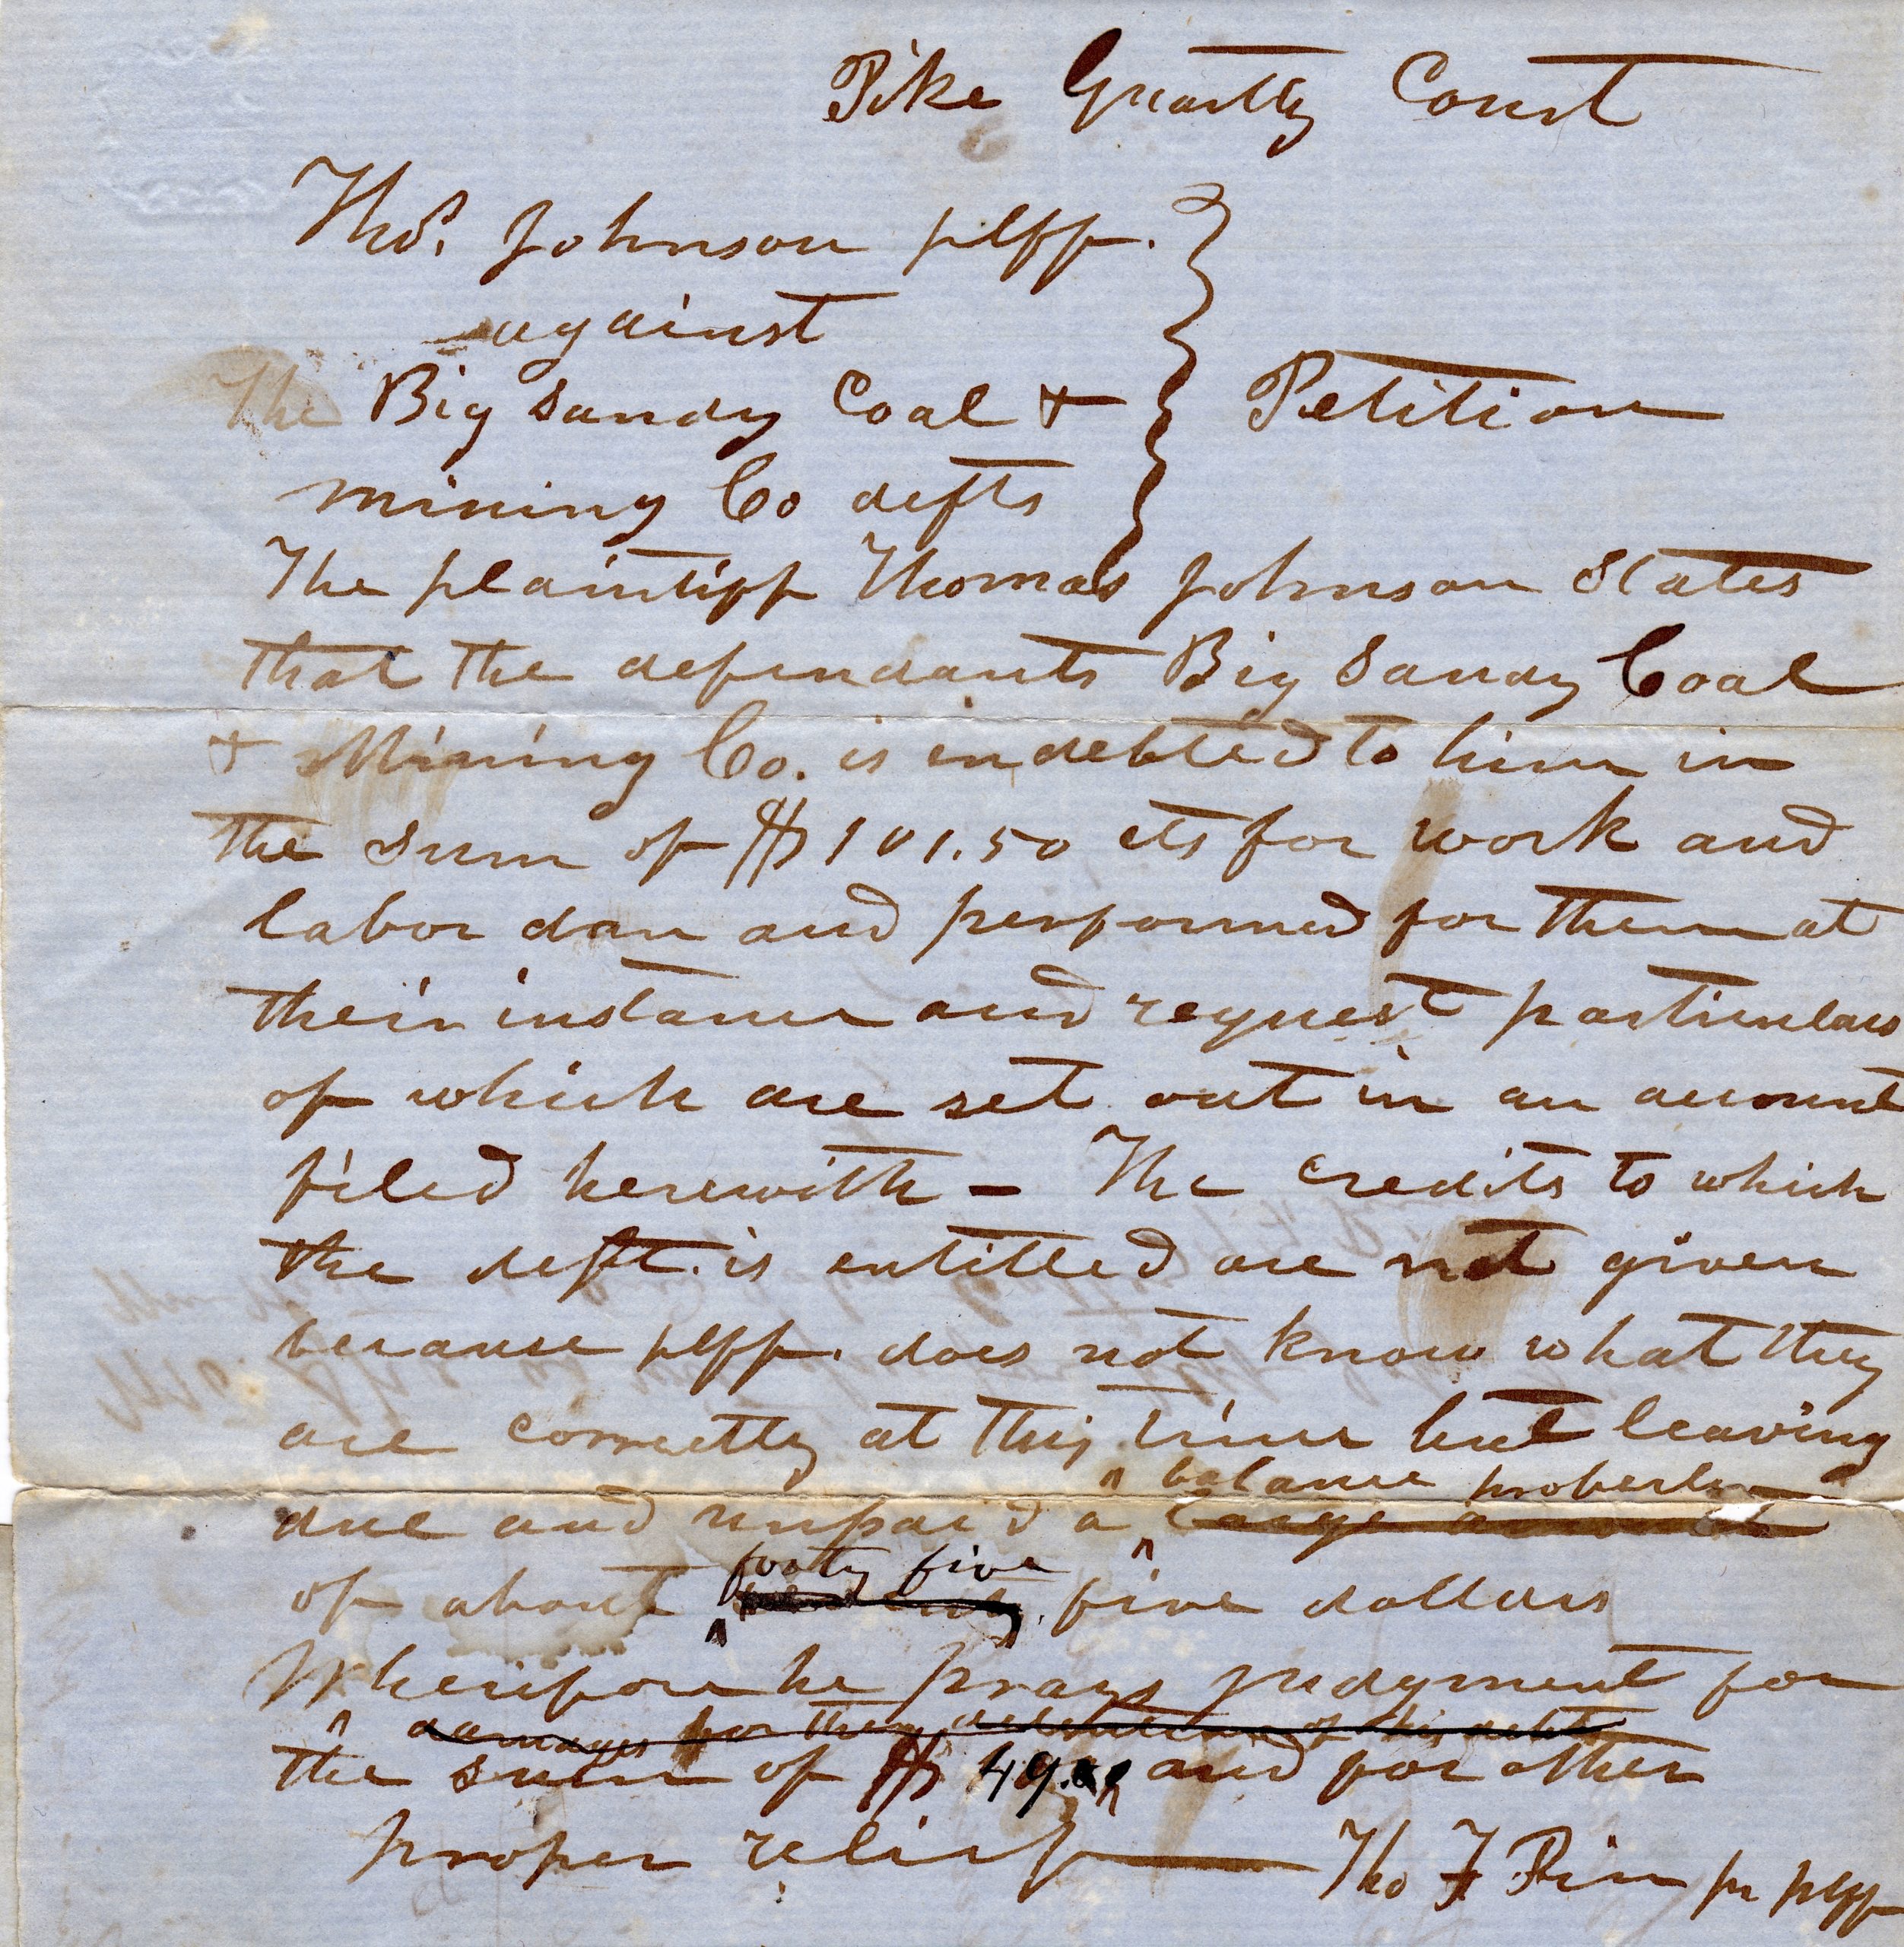 Pike Quartly Court
Thos. Johnson plff.
against
The Big Sandy Coal +
mining Co defts
Petition
The plaintiff Thomas Johnson States
that the defendants Big Sandy Coal
+ Mining Co. is indebted to him in
the sum of $101.50 cts for work and
labor don and performed for them at
their instance and request particulars
of which are set out in an account
filed herewith – The credits to which
the deft. is entitled are not given
because plff. does not know what they
are correctly at this time but leaving
balance properly
due and unpaid a large amount
forty five
of about five dollars
Wherefore he prays judgment for
damages for the detention of his debt
the sum of $ 49.00 and for other
proper relief — Tho F pr plff